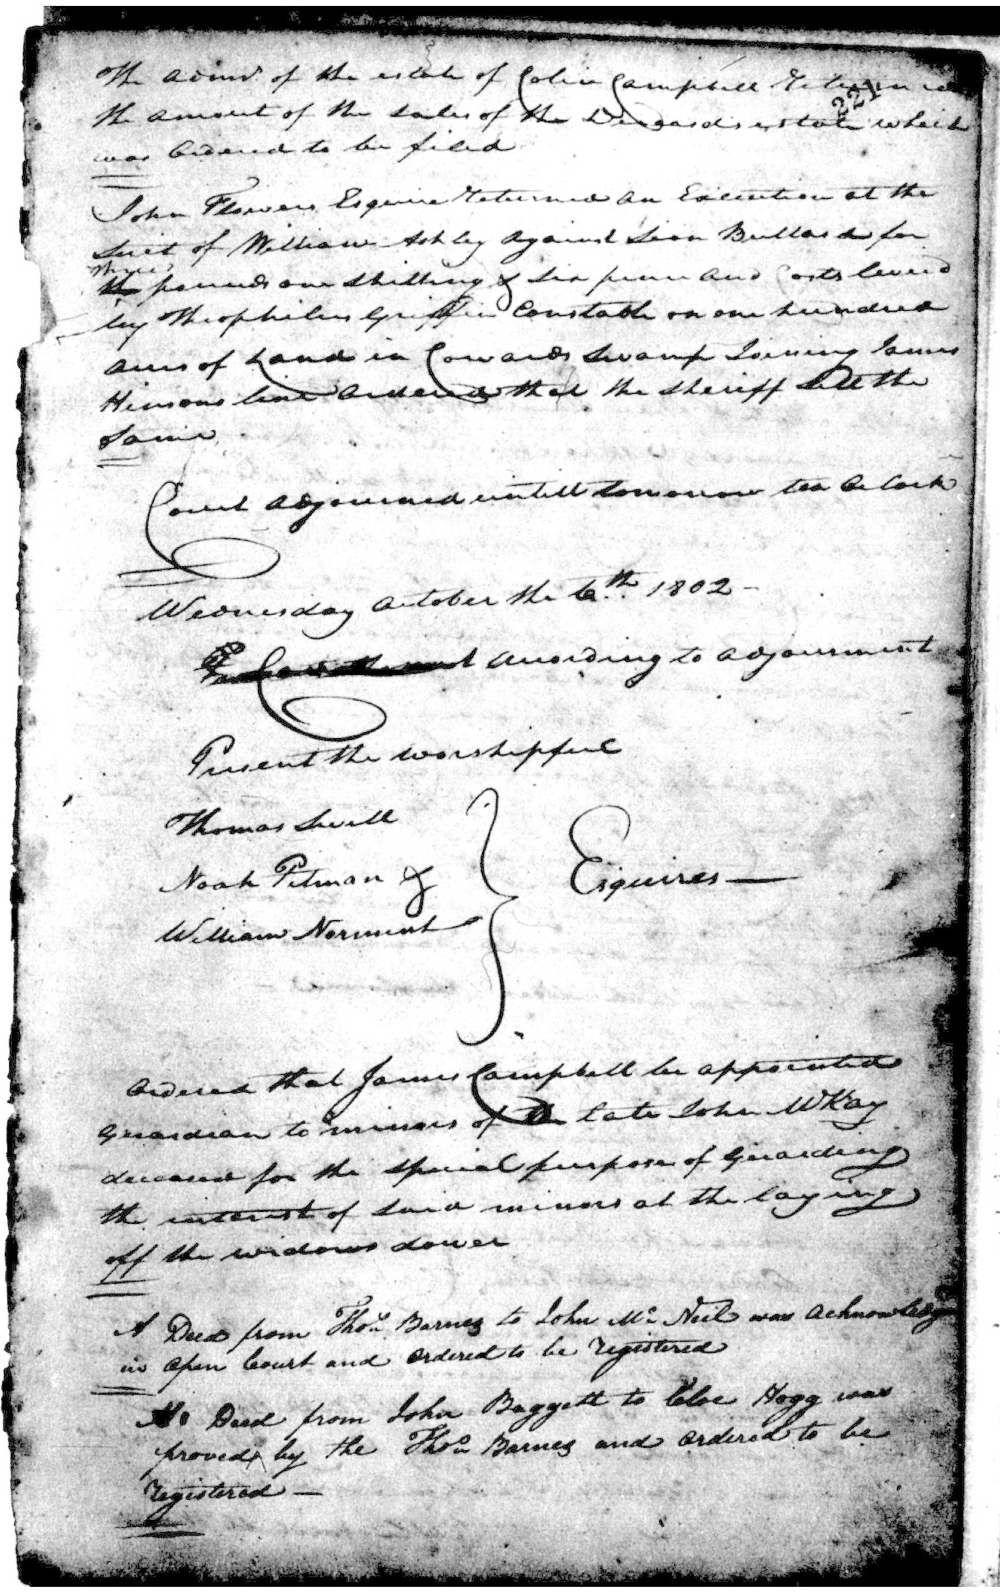 221
The Admr. of the estate of Colin Campbell Returned
the amount of the sales of the Deceasds estate which
was Ordered to be filed
John Flowers Esquire Returned an Execution at the
Suit of William Ashley against Sion Bullard for
three
pounds one shilling & six penc and Costs levied
by Theophilus Griffin Constable on one hundred
acres of Land in Cowards Swamp Joining James
Hinsons line Ordered that the Sheriff Sell the
Same
Court adjourned untill tomorrow ten Oclock
Wednesday October the 6th. 1802 -
Court according to adjournment
Present the worshipfull
Thomas Sevill
Noah Pitman &
William Norment
Esquires —
Ordered that James Campbell be appointed
Guardian to minors of the late John McKay
deceased for the special purpose of Guarding
the interest of said minors at the laying
off the widows dower
A Deed from Thos. Barnes to John Mc Neil was acknowledged
in Open Court and ordered to be registered
A Deed from John Baggett to Cloe Hogg was
proved by the Thos. Barnes and ordered to be
registered —